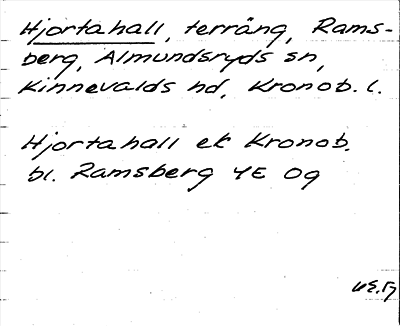 Hjortahall, terräng, Rams-
berg, Almundsryds sn,
Kinnevalds hd, Kronob. l.
Hjortahall ek Kronob.
bl. Ramsberg 4E 0g